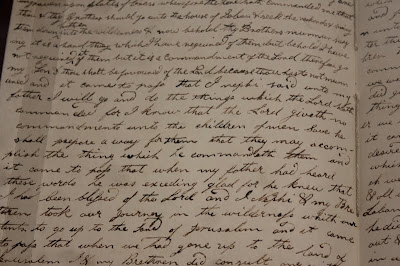 ingraven upon plates of brass wherefore the Lord hath commanded me that
thou & thy Brothers should go unto the house of Laban & seek the records & bring
them down into the wilderness & now behold thy Brothers murmur say
ing it is a hard thing which I have required of them but behold I have
not required it of them but it is a commandment of the Lord therefore go
my Son & thou shalt be favoured of the Lord because thou hast not mur
mured and it came to pass that I nephi said unto my
father I will go and do the things which the Lord hath
commanded for I know that the Lord giveth no
commandments unto the children of men save he
shall prepare a way for them that they may accom
plish the thing which he commandeth them and
it came to pass that when my father had heard
these words he was exceding glad for he knew that
I had been blessed of the Lord and I Nephi & my Bre
thren took our Journey in the wilderness with our
tents to go up to the land of Jerusalem and it came
to pass that when we had gone up to the land of
Jerusalem I & my Brethren did consult one